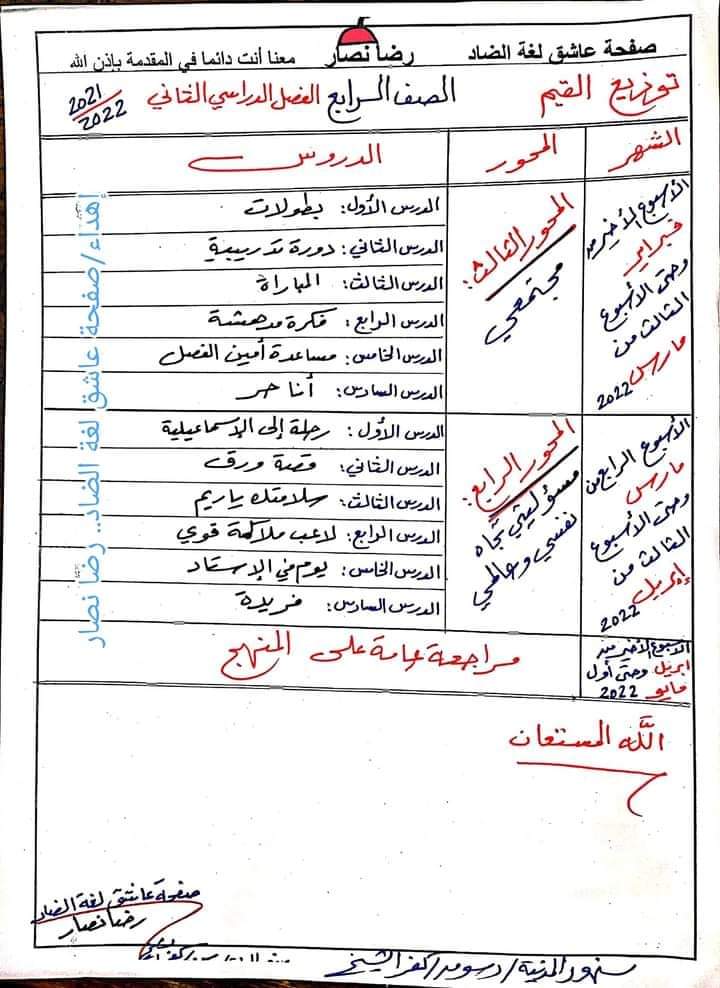 صفحة عاشق لغة الضاد رضا نصار معنا أنت دائما في المقدمة بإذن الله
توزيع القيم الصف الرابع الفصل الدراسي الثاني 2021/2022
الشهر المحور الدروس
الأسبوع الأخير من فبراير وحتى الأسبوع الثالث من مارس 2022
المحور الثالث: مجتمعي
الدرس الأول: بطولات
الدرس الثاني: دورة تدريبية
الدرس الثالث: المباراة
الدرس الرابع: فكرة مدهشة
الدرس الخامس: مساعدة أمين الفصل
الدرس السادس: أنا حر
الأسبوع الرابع من مارس وحتى الأسبوع الثالث من إبريل 2022
المحور الرابع: مسؤليتي تجاه نفسي وعالمي
الدرس الأول: رحلة إلى الإسماعيلية
الدرس الثاني: قصة ورق
الدرس الثالث: سلامتك يا ريم
الدرس الرابع: لاعب ملاكمة قوي
الدرس الخامس: يوم في الإستاد
الدرس السادس: فريدة
الاسبوع الأخير من ابريل وحتى أول مايو 2022
مراجعة عامة على المنهج
الله المستعان
إهداء/صفحة عاشق لغة الضاد.. رضا نصار
صفحة عاشق لغة الضاد
رضا نصار
سنهور المدينة/دسوق/كفر الشيخ